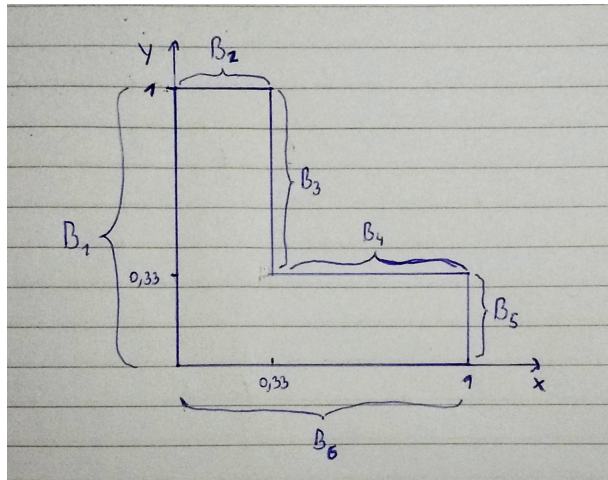 Y B₂
1
B₃
B₁
B₄
0,33
B₅
0,33 1 x
B₆